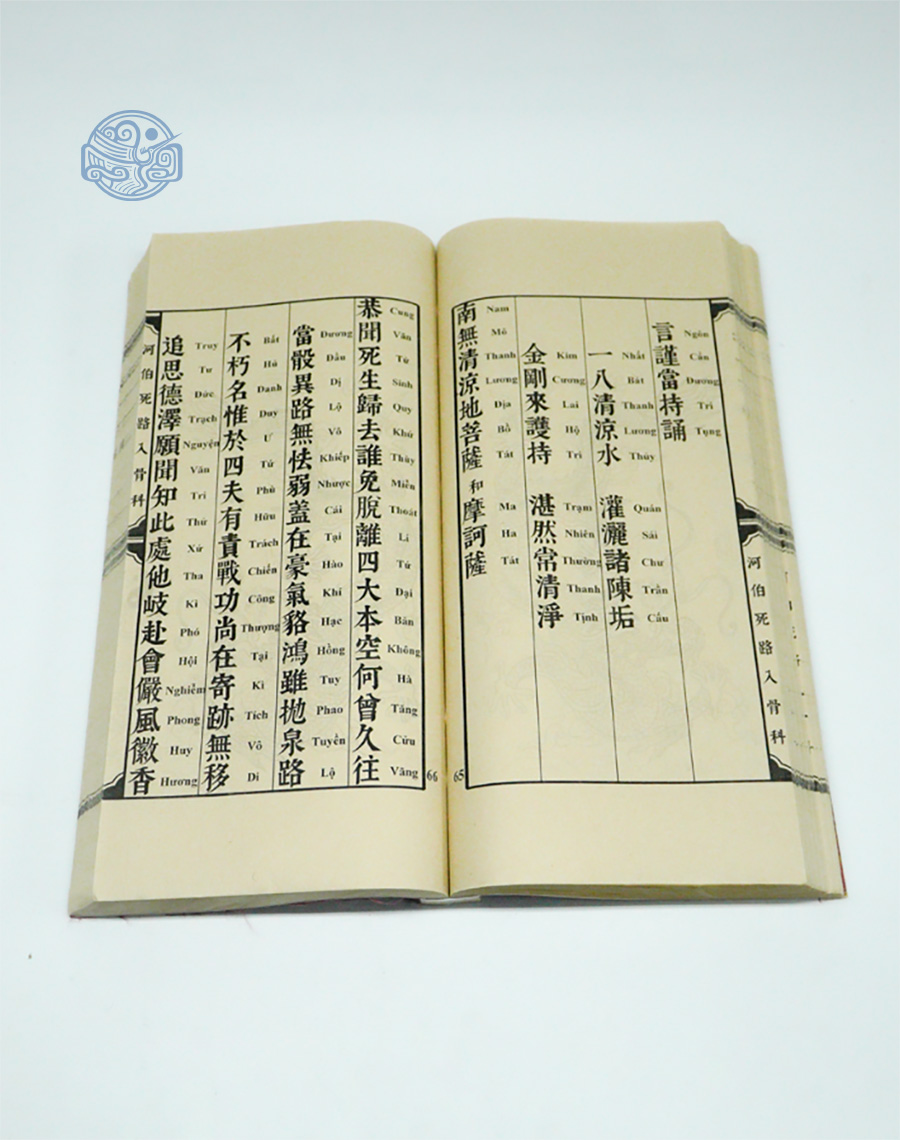 河伯死路入骨科
言謹當持誦
Ngôn Cẩn Đương Trì Tụng
一八清涼水 灌灑諸陳垢
Nhất Bát Thanh Lương Thủy Quán Sái Chư Trần Cấu
金剛來護持 湛然常清淨
Kim Cương Lai Hộ Trì Trạm Nhiên Thường Thanh Tịnh
南無清涼地菩薩和摩訶薩
Nam Mô Thanh Lương Địa Bồ Tát Ma Ha Tát
65
66
恭聞死生歸去誰免脫離四大本空何曾久往
Cung Văn Tử Sinh Quy Khứ Thùy Miễn Thoát Li Tứ Đại Bản Không Hà Tăng Cửu Vãng
當骰異路無怯弱蓋在豪氣貉鴻雖拋泉路
Đương Đầu Dị Lộ Vô Khiếp Nhược Cái Tại Hào Khí Hạc Hồng Tuy Phao Tuyền Lộ
不朽名惟於四夫有責戰功尚在寄跡無移
Bất Hủ Danh Duy Ư Tứ Phù Hữu Trách Chiến Công Thượng Tại Kì Tích Vô Di
追思德澤願聞知此處他岐赴會儼風徽香
Truy Tư Đức Trạch Nguyện Văn Tri Thử Xứ Tha Kì Phó Hội Nghiễm Phong Huy Hương
河伯死路入骨科